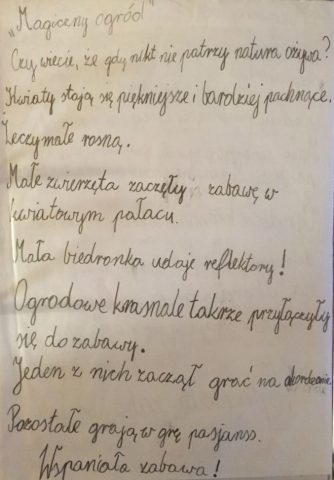 „Magiczny ogród”
Czy wiecie, że gdy nikt nie patrzy natura ożywa?
Kwiaty stają się piękniejsze i bardziej pachnące.
małe rosną.
Małe zwierzęta zaczęły zabawę w
kwiatowym pałacu.
Mała biedronka udaje reflektory!
Ogrodowe krasnale takrze przyłączyły
się do zabawy.
Jeden z nich zaczął grać na akordeonie.
Pozostałe grają w grę pasjanss.
Wspaniała zabawa!